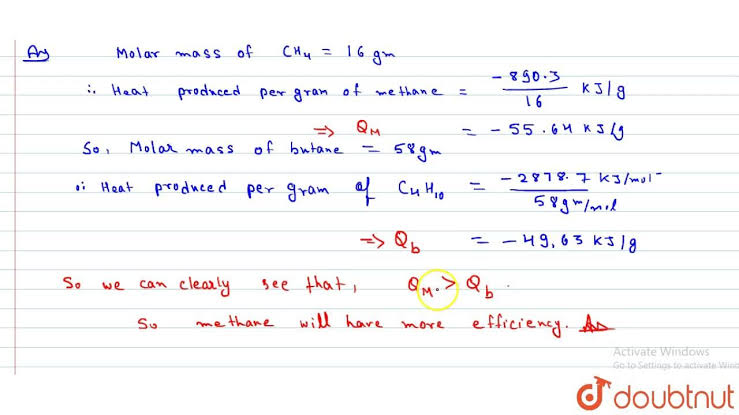 Ans Molar mass of CH4 = 16 gm
∴ Heat produced per gram of methane = -890.3/16 KJ/g
=> QM = -55.64 KJ/g
So, Molar mass of butane = 58gm
∴ Heat produced per gram of C4H10 = -2878.7 KJ/mol/58gm/mol
=> Qb = -49.63 KJ/g
So we can clearly see that, QM > Qb.
So methane will have more efficiency. Ans
Activate Windows
Go to Settings to activate Wind
doubtnut